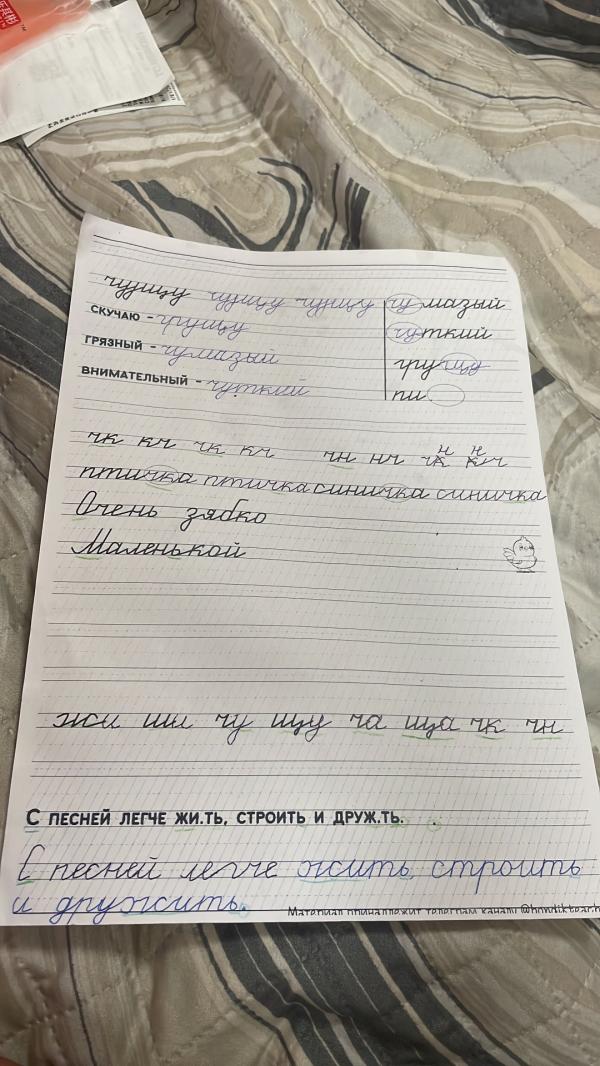 чущу чущу чущу чумазый
СКУЧАЮ - грущу чуткий
ГРЯЗНЫЙ - чумазый грущу
ВНИМАТЕЛЬНЫЙ - чуткий пи
чк кч чк кч чн нч чк кч
н н
птичка птичка синичка синичка
Очень зябко
Маленькой
жи ши чу щу ча ща чк чн
С ПЕСНЕЙ ЛЕГЧЕ ЖИ.ТЬ, СТРОИТЬ И ДРУЖ.ТЬ.
С песней легче жить, строить
и дружить.
Материал принадлежит телеграм каналу